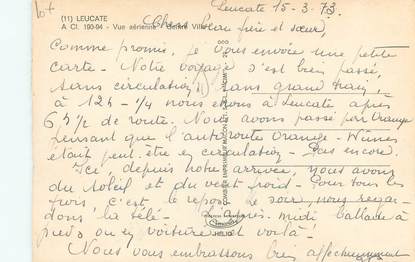 lot
Leucate 15-3-73
(11) LEUCATE
A Cl. 190-94 - Vue aérienne - Centre Ville
Chers beau frère et soeur,
Comme promis, je vous envoie une petite
carte - Notre voyage s'est bien passé,
sans circulation, sans grand train,
à 12h - 1/4 nous étions à Leucate après
6h 1/2 de route. Nous avons passé par Orange
pensant que l'autoroute Orange - Nîmes
était peut être en circulation - Pas encore.
Ici, depuis notre arrivée, nous avons
du soleil et du vent froid - Pour tous les
trois, c'est le repos. Le soir, nous regar-
dons la télé - L'après-midi ballade à
pieds ou en voiture et voilà!
Nous vous embrassons bien affectueusement